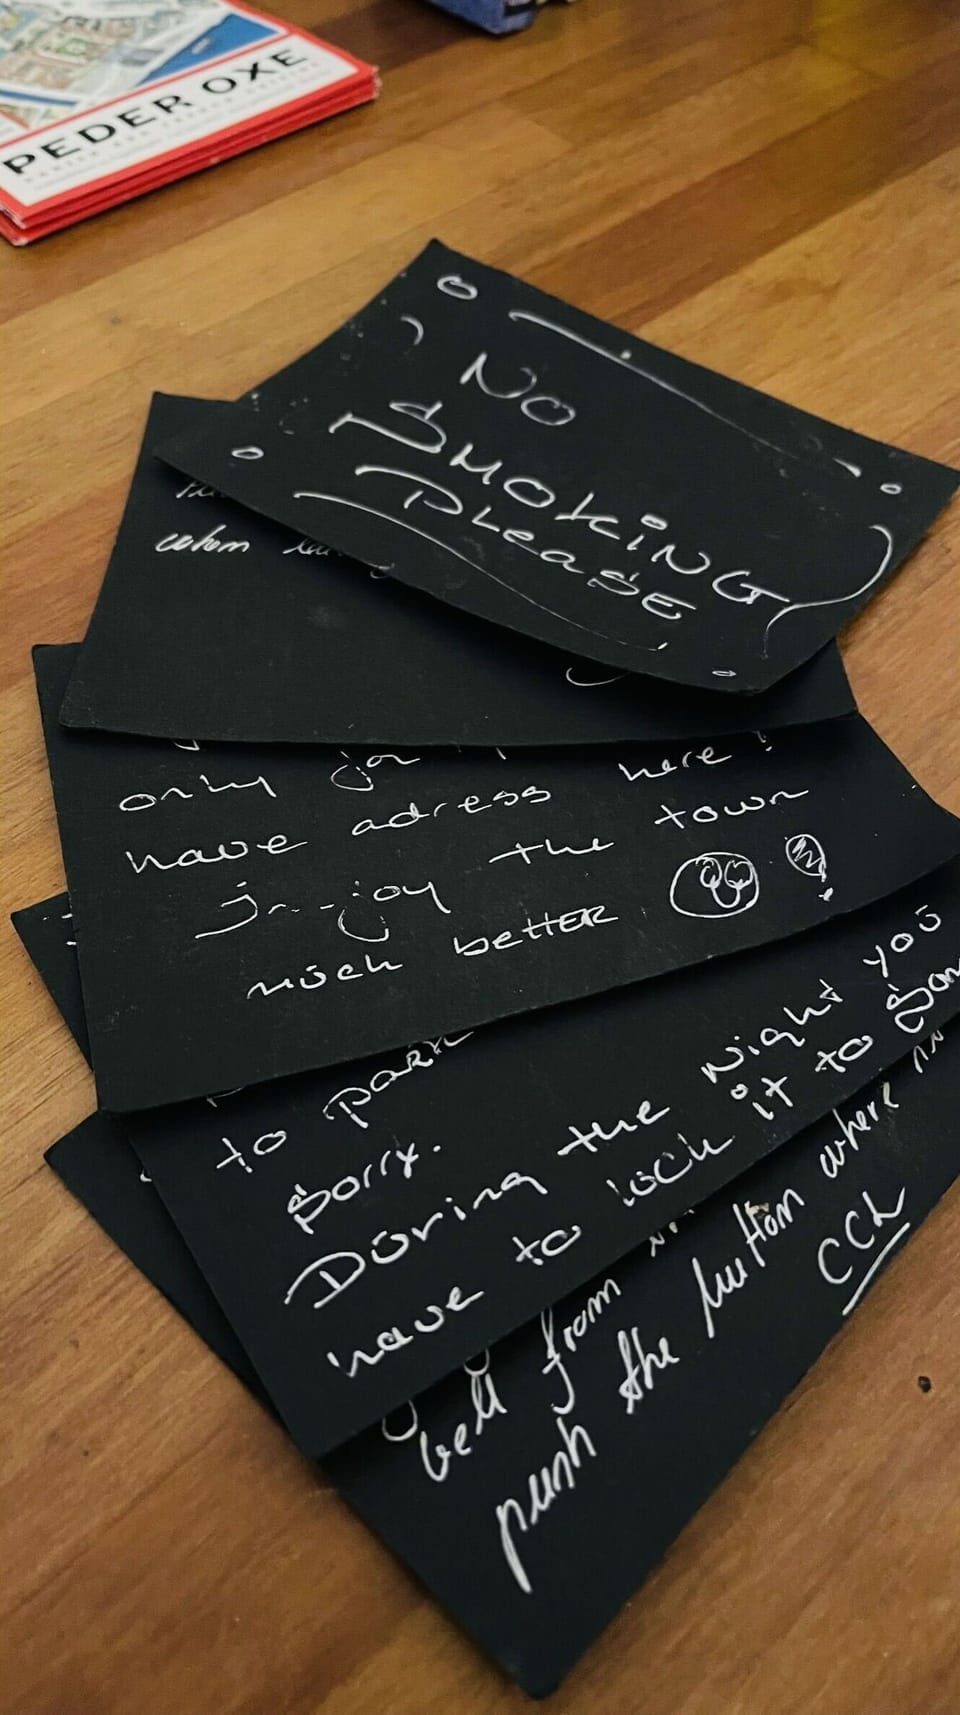 PEDER OXE
NO
SMOKING
PLEASE
when
only for
have adress here!
Jn--joy the town
much better !
to park
Sorry.
During the night you
have to lock it to
bell from
push the button where
CCL